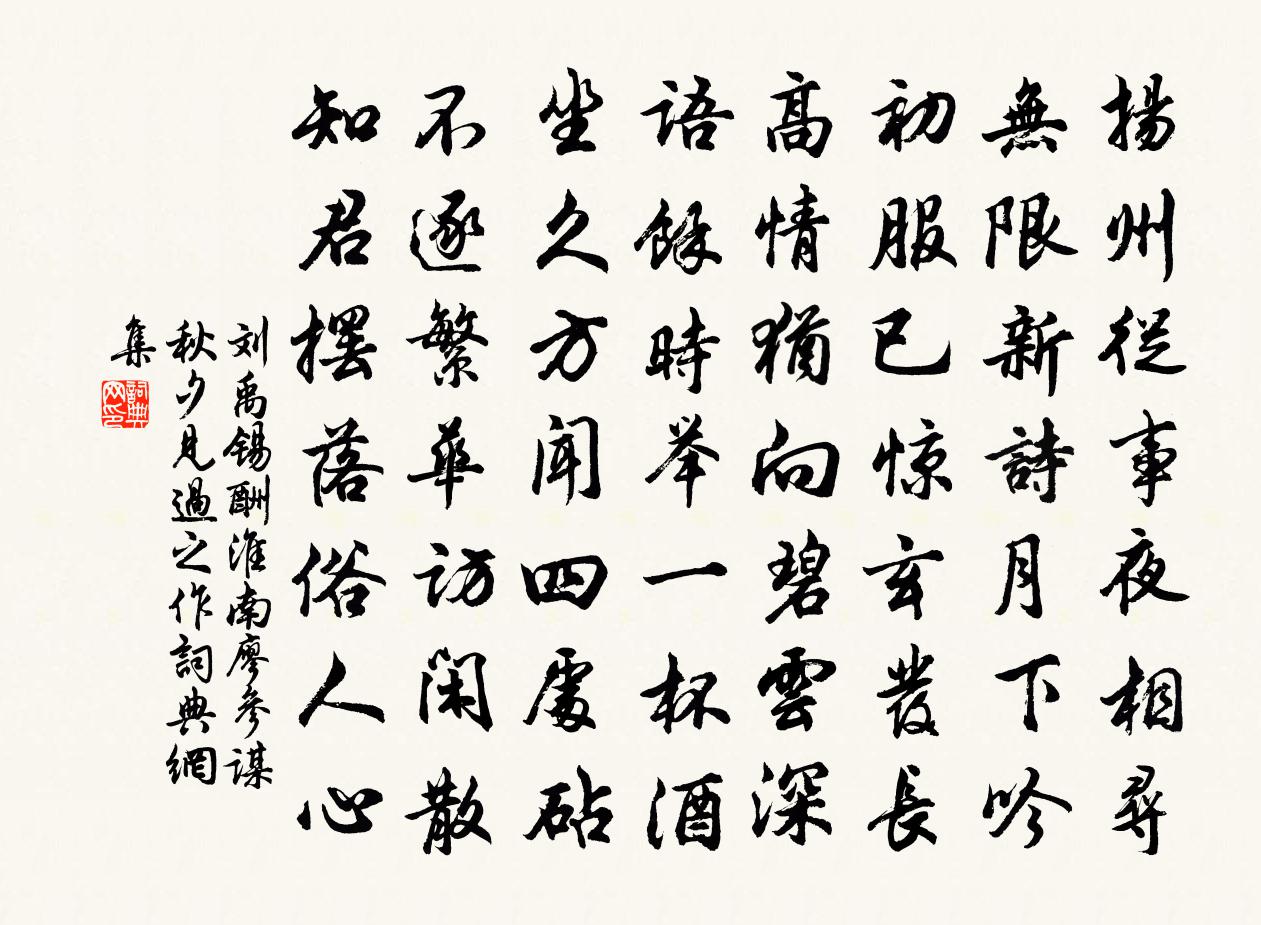 揚州從事夜相尋
無限新詩月下吟
初服已惊玄發長
高情猶向碧雲深
語餘時举一杯酒
坐久方闻四處砧
不逐繁華访闲散
知君擺落俗人心
刘禹锡酬淮南廖參謀
秋夕見過之作詞典網
集
詞典
网印